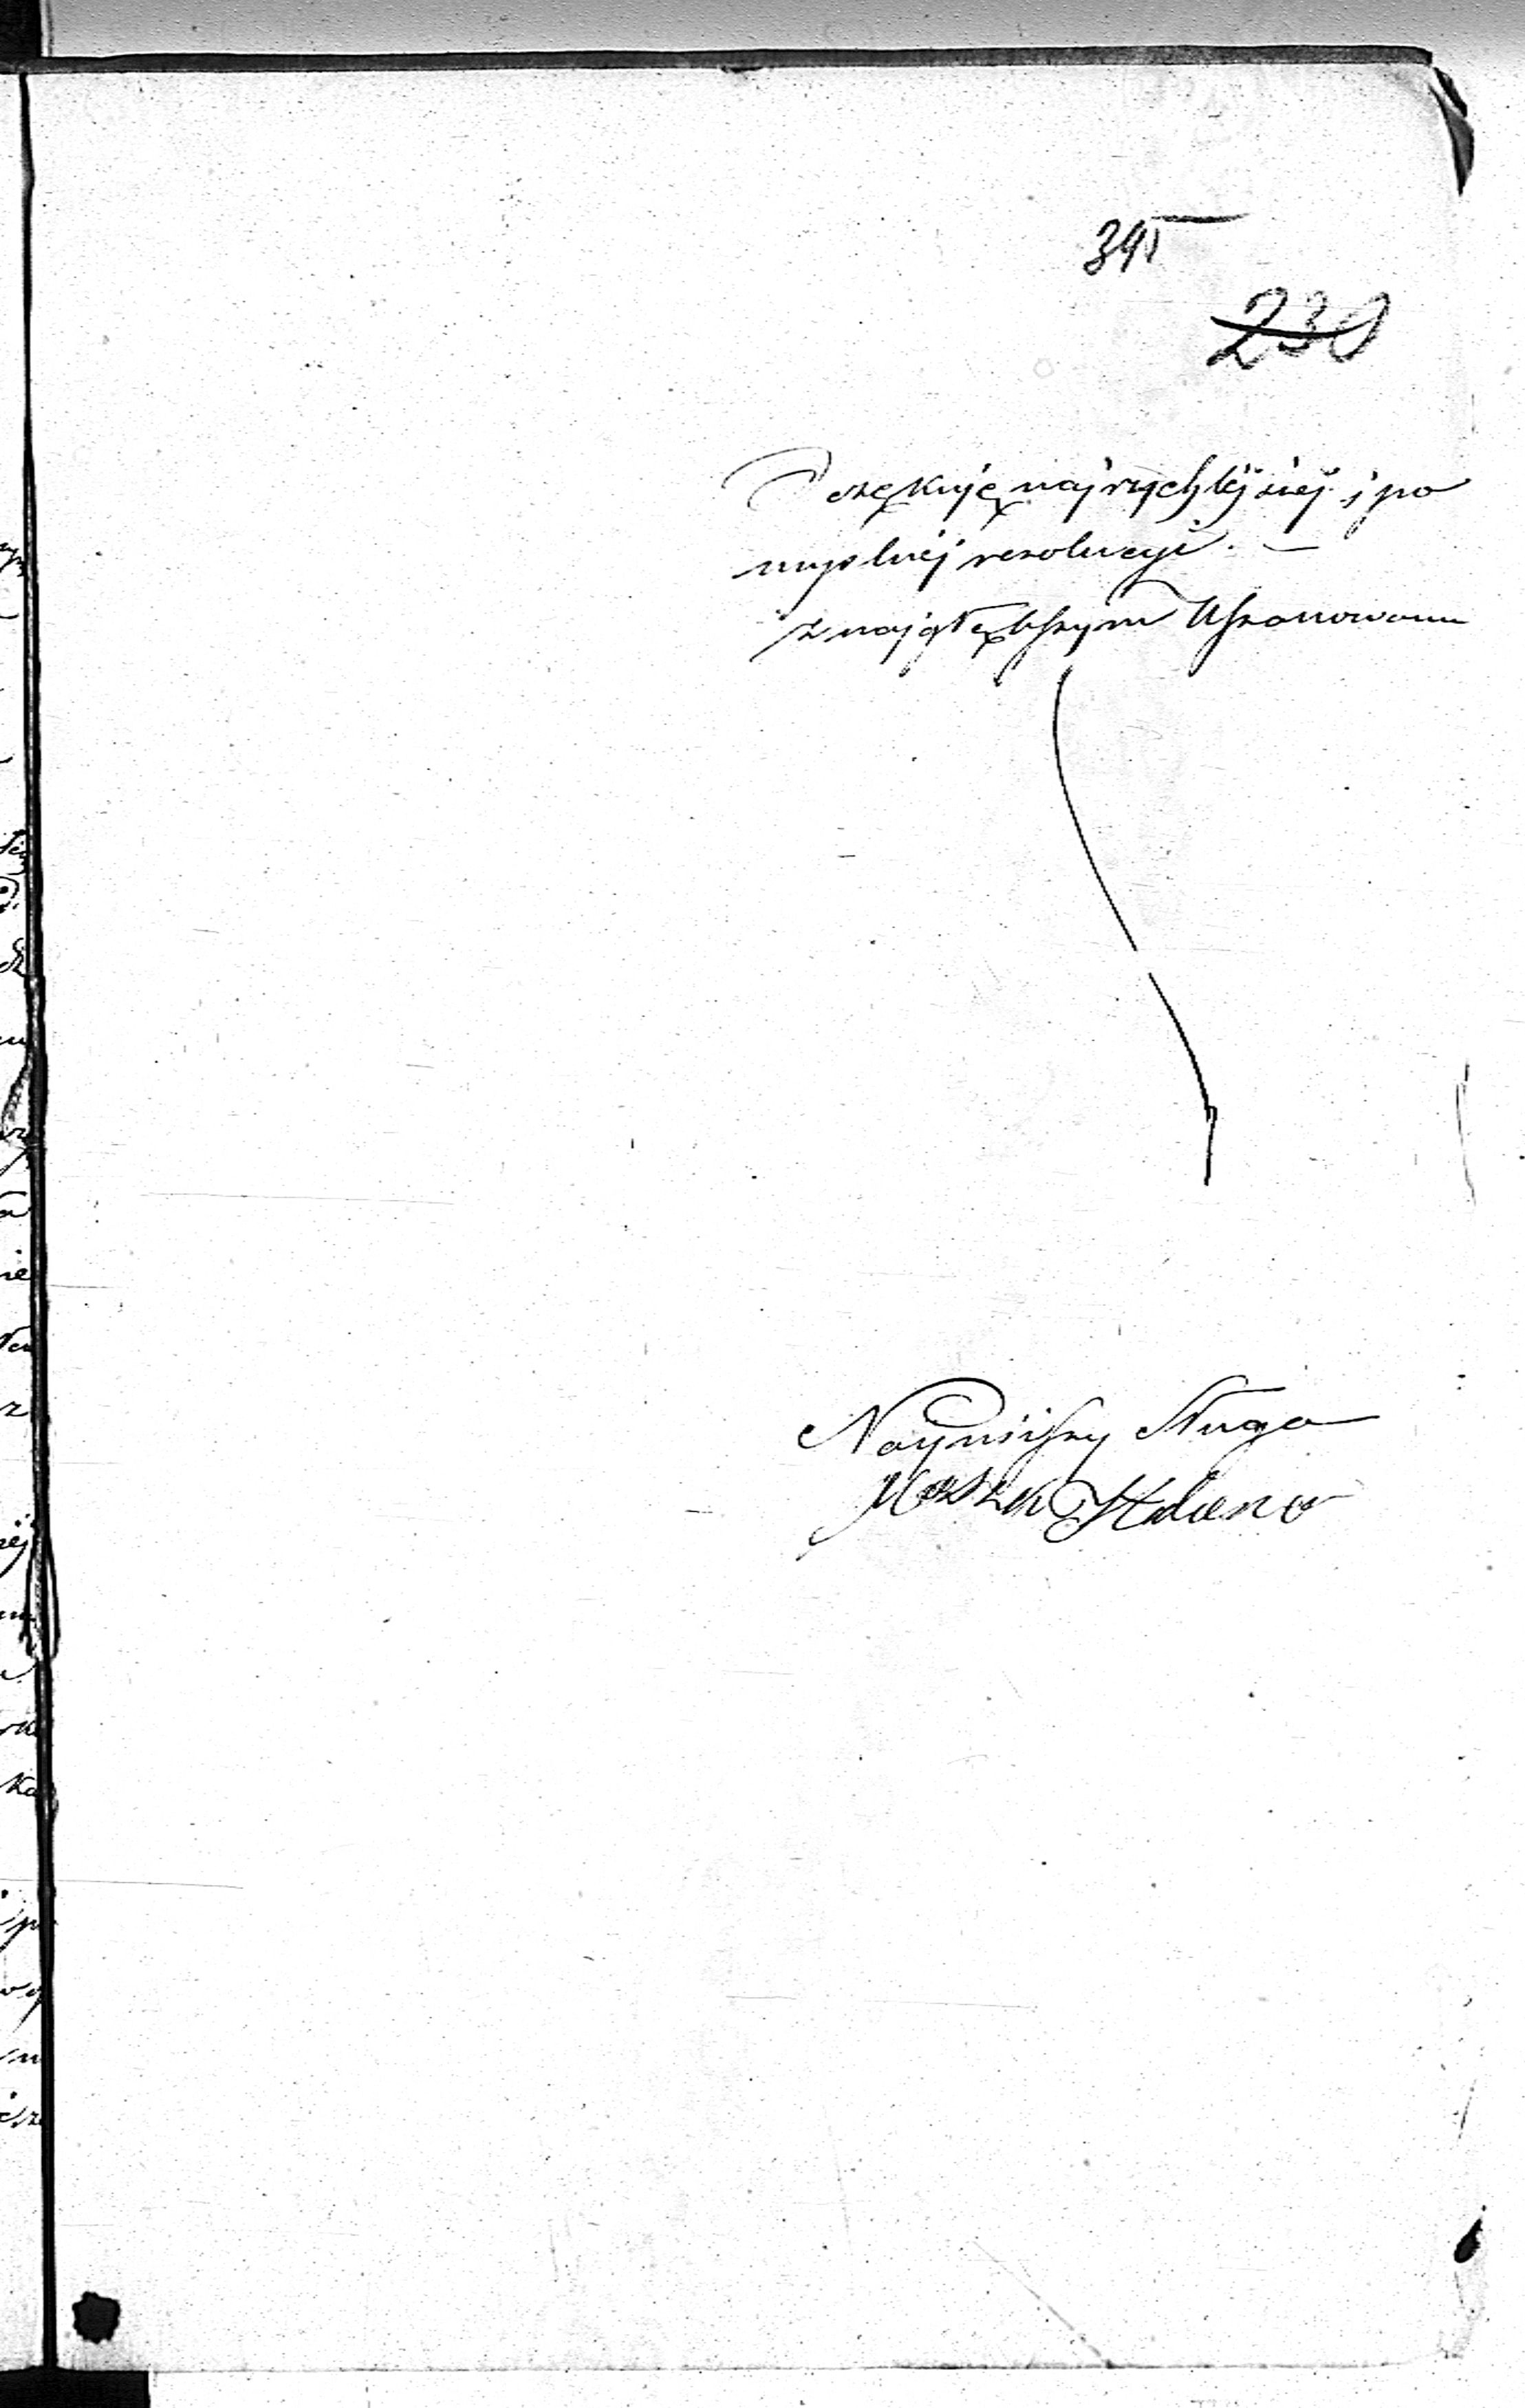 391
230
Oczękuję najrychlejszej i po
myslnej rezolucyi. —
z najgłębszym Uszanowaniem
Nayniższy Sługa